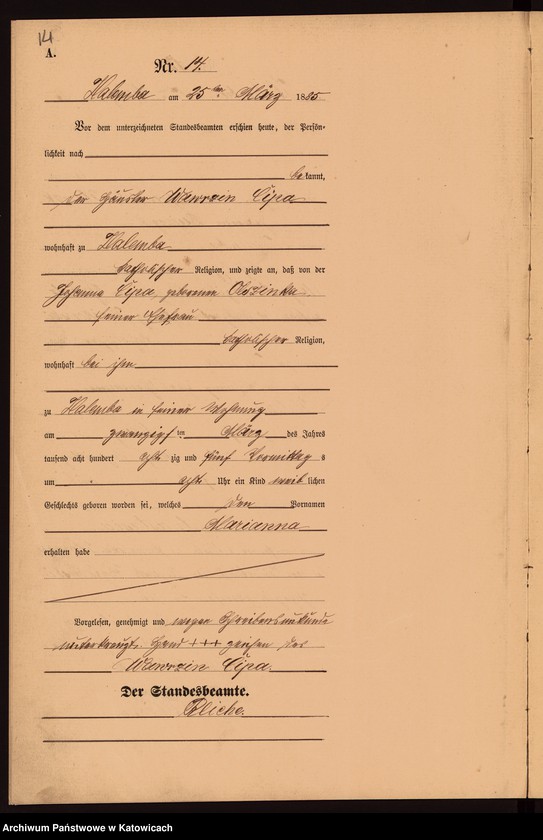 14
A.
Nr. 14.
Halemba am 25ten März 1885
Vor dem unterzeichneten Standesbeamten erschien heute, der Persön-
lichkeit nach
bekannt,
der Häusler Wawrzin Cipa
wohnhaft zu Halemba
katholischer Religion, und zeigte an, daß von der
Johanna Cipa geborenen
seiner Ehefrau
katholischer Religion,
wohnhaft bei ihm
zu Halemba in seiner Wohnung
am zwanzigsten März des Jahres
tausend acht hundert acht zig und fünf Vormittags
um acht Uhr ein Kind weiblichen
Geschlechts geboren worden sei, welches den Vornamen
Marianna
erhalten habe
Vorgelesen, genehmigt und wegen Schreibensunkunde
unterkreuzt. Hand +++ zeichen des
Wawrzin Cipa.
Der Standesbeamte.
Archiwum Państwowe w Katowicach